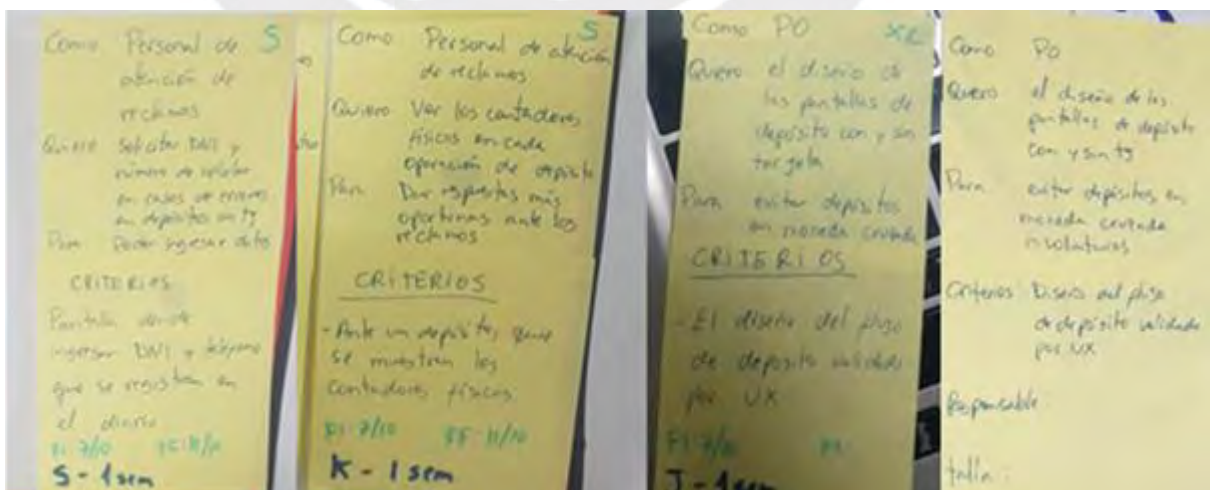 Como Personal de S
atención de
reclamos
Quiero Solicitar DNI y
número de celular
en casos de errores
en depósitos sin tj
Para Poder ingresar datos
CRITERIOS
Pantalla donde
ingresar DNI y teléfono
que se registran en
el diario
FI: 7/10 FF: 11/10
S - 1 sem
Como Personal de atención S
de reclamos
Quiero Ver los contadores
físicos en cada
operación de depósito
Para Dar respuestas más
oportunas ante los
reclamos
CRITERIOS
- Ante un depósito, que
se muestren los
contadores físicos.
FI: 7/10 FF: 11/10
K - 1 sem
Como PO XL
Quiero el diseño de
las pantallas de
depósito con y sin
tarjeta
Para evitar depósitos
en moneda cruzada
CRITERIOS
- El diseño del flujo
de depósito validado
por UX
FI: 7/10 FF:
J - 1 sem
Como PO
Quiero el diseño de las
pantallas de depósito
con y sin tj
Para evitar depósitos en
moneda cruzada
involuntarios
Criterios Diseño del flujo
de depósito validado
por UX
Responsable:
talla: